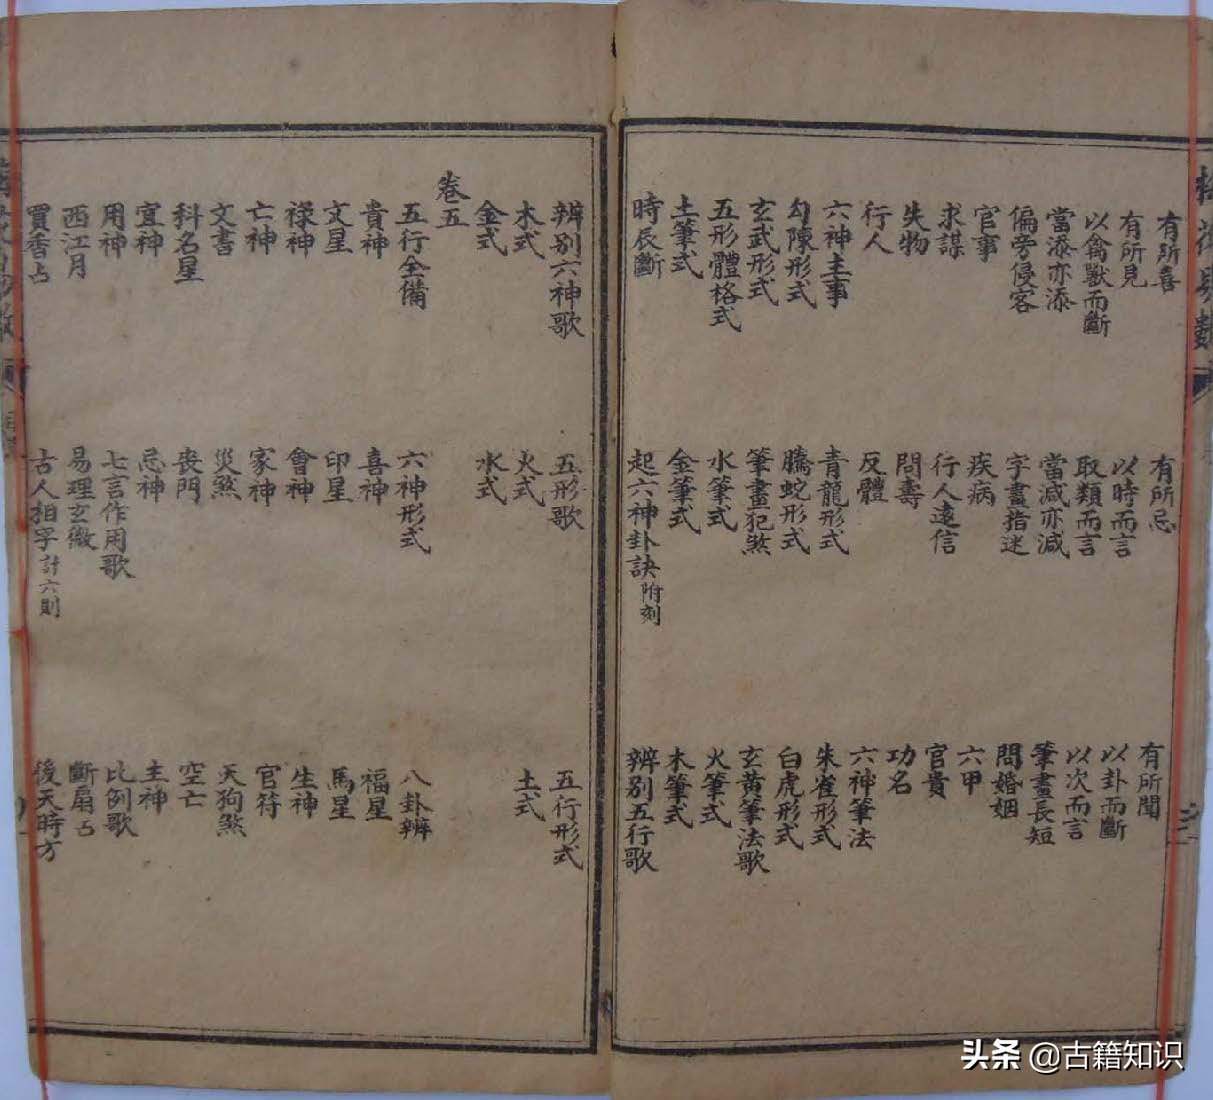 有所喜 有所忌 有所聞
有所見 以時而言 以卦而斷
以禽獸而斷 取類而言 以次而言
當添亦添 當減亦減 筆畫長短
偏旁侵客 字畫指迷 問婚姻
官事 疾病 六甲
求謀 行人遠信 官貴
失物 問壽 功名
行人 反體 六神筆法
六神主事 青龍形式 朱雀形式
勾陳形式 騰蛇形式 白虎形式
玄武形式 筆畫犯煞 玄黃筆法歌
五形體格式 水筆式 火筆式
土筆式 金筆式 木筆式
時辰斷 起六神卦訣附刻 辨别五行歌
辨别六神歌 五形歌 五行形式
木式 火式 土式
金式 水式
卷五
五行全備 六神形式 八卦辨
貴神 喜神 福星
文星 印星 馬星
祿神 會神 生神
亡神 家神 官符
文書 災煞 天狗煞
科名星 喪門 空亡
宜神 忌神 主神
用神 七言作用歌 比例歌
西江月 易理玄微 斷扇占
買香占 古人相字計六則 後天時方
头条 @古籍知识